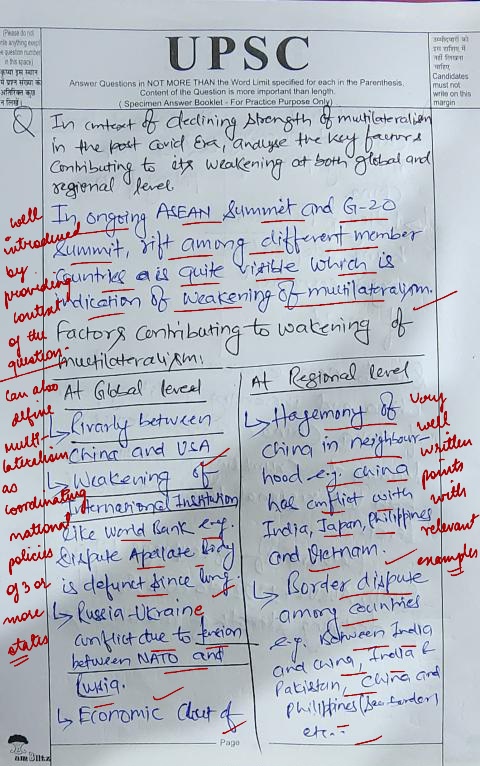 (Please do not
write anything except
the question number
in this space)
कृपया इस स्थान
में प्रश्न संख्या के
अतिरिक्त कुछ
न लिखें
UPSC
Answer Questions in NOT MORE THAN the Word Limit specified for each in the Parenthesis.
Content of the Question is more important than length.
( Specimen Answer Booklet - For Practice Purpose Only)
उम्मीदवारों को
इस हाशिए में
नहीं लिखना
चाहिए
Candidates
must not
write on this
margin
Q In context of declining strength of multilateralism
in the post Covid Era, analyse the key factors
Contributing to its weakening at both global and
regional level
In ongoing ASEAN Summit and G-20
Summit, rift among different member
Countries is quite visible which is
indication of weakening of multilateralism.
factors Contributing to wakening of
multilateralism.
At Global level
↳ Rivarly between
China and USA
↳ Weakening of
International Institution
like World Bank e.g.
Dispute Apelate Body
is defunct since long.
↳ Russia-Ukraine
conflict due to tension
between NATO and
Russia.
↳ Economic Clout of
At Regional level
↳ Hagemony of
China in neighbour-
hood e.g. China
has conflict with
India, Japan, Philippines
and Vietnam.
↳ Border dispute
among countries
e.g. Between India
and China, India &
Pakistan, China and
Philippines (Sea border)
etc.
well
introduced
by
providing
context
of the
question.
can also
define
multi-
lateralism
as
coordinating
national
policies
of 3 or
more
states
Very
well
written
points
with
relevant
examples
Page
am Blitz